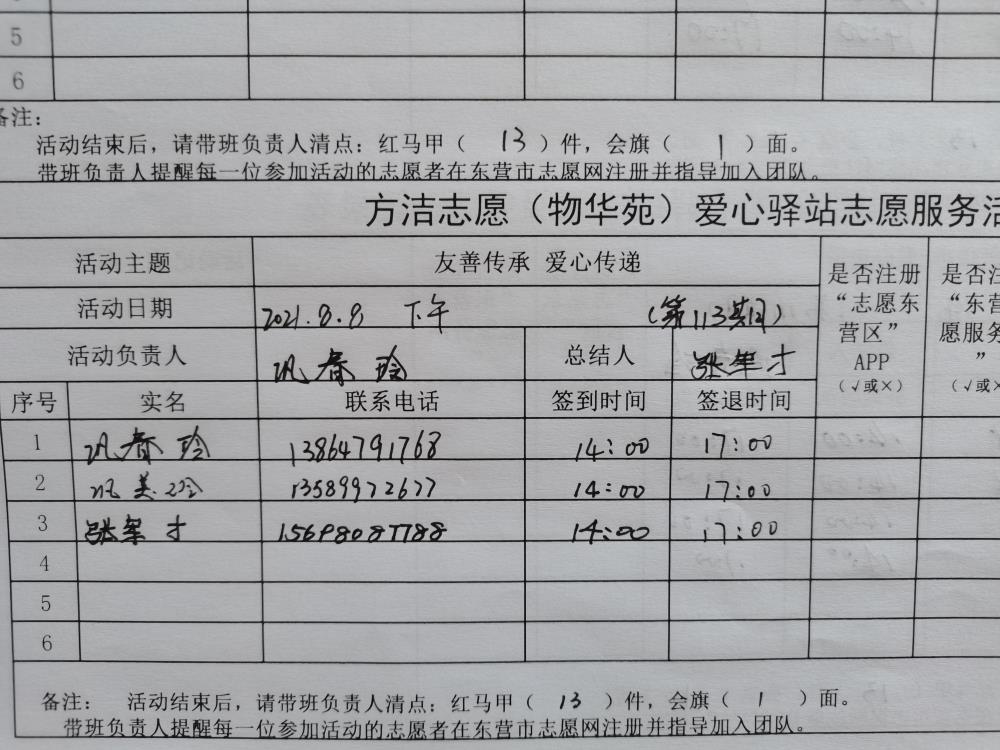 5
6
备注：
活动结束后，请带班负责人清点：红马甲（ 13 ）件，会旗（ 1 ）面。
带班负责人提醒每一位参加活动的志愿者在东营市志愿网注册并指导加入团队。
方洁志愿（物华苑）爱心驿站志愿服务活
活动主题 友善传承 爱心传递 是否注册“志愿东营区”APP（√或×） 是否注 “东营 愿服务 ”（√或×
活动日期 2021.8.8 下午 （第113期）
活动负责人 巩春玲 总结人 张军才
序号 实名 联系电话 签到时间 签退时间
1 巩春玲 13864791768 14:00 17:00
2 巩美玲 13589972677 14:00 17:00
3 张军才 15698087788 14:00 17:00
4
5
6
备注： 活动结束后，请带班负责人清点：红马甲（ 13 ）件，会旗（ 1 ）面。
带班负责人提醒每一位参加活动的志愿者在东营市志愿网注册并指导加入团队。